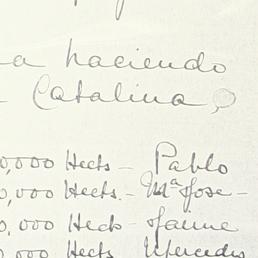 a haciendo
Catalina,
0,000 Hects - Pablo
0,000 Hects. - Mª Jose -
0,000 Hect - Jaime
0,000 Hects Mercedes